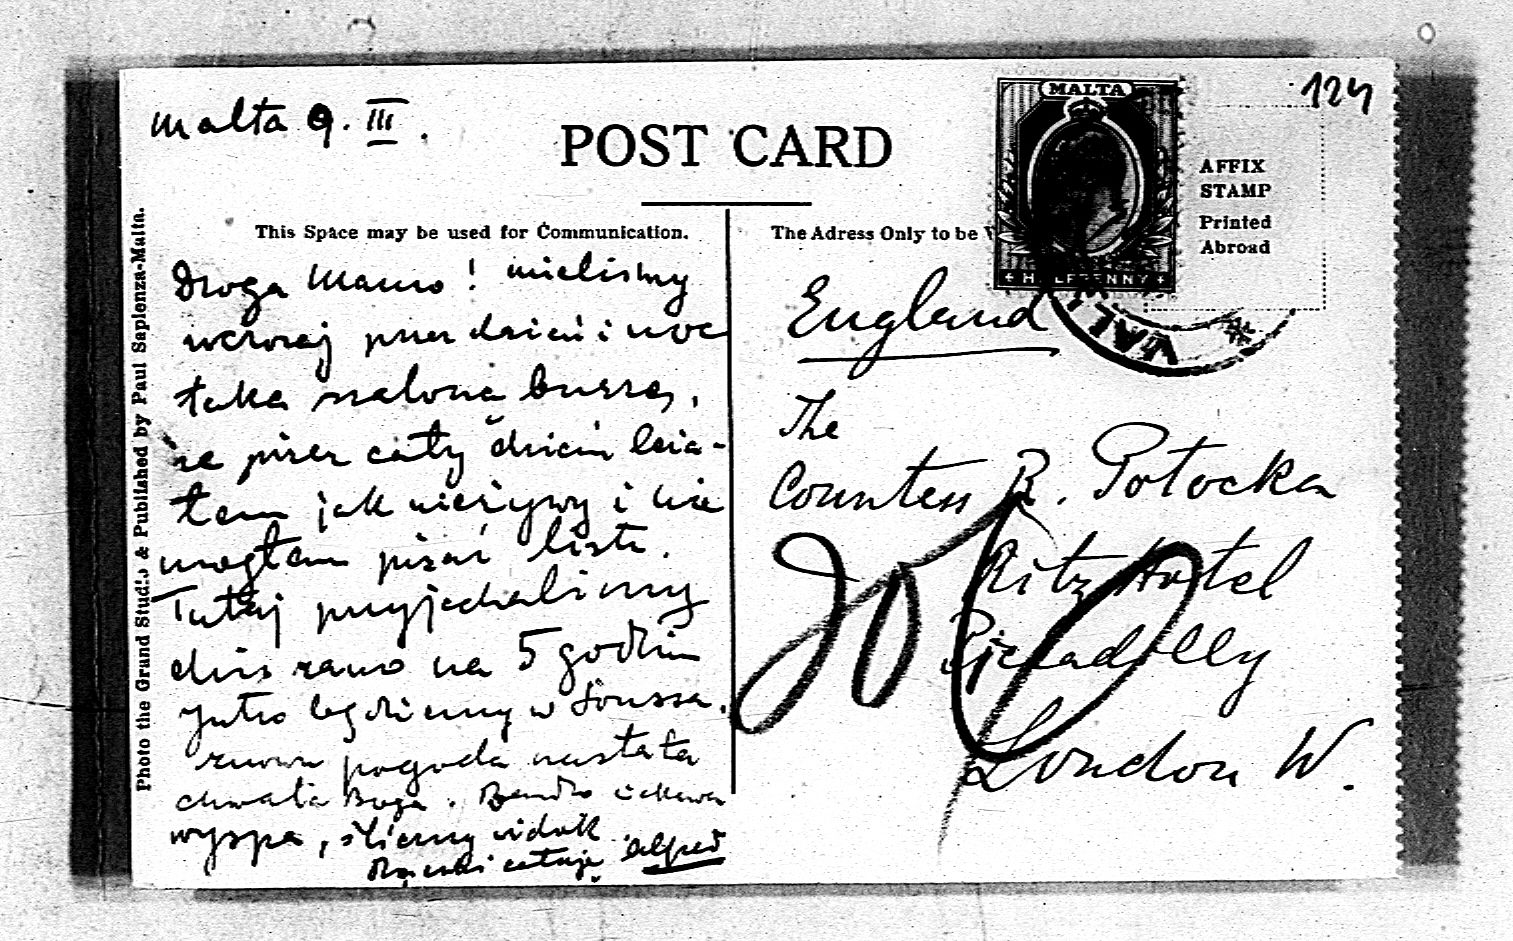 124
Malta 9. III.
POST CARD
MALTA
HALFPENNY
AFFIX
STAMP
Printed
Abroad
This Space may be used for Communication.
The Adress Only to be
Photo the Grand Studio & Published by Paul Sapienza-Malta.
Droga Mamo! mieliśmy
wczoraj przez dzień i noc
taką szaloną burzę,
że przez cały dzień leża-
łem jak nieżywy i nie
mogłem pisać listu.
Tutaj przyjechaliśmy
dziś rano na 5 godzin
jutro będziemy w Soussa.
znowu pogoda nastała
chwała Boga. Bardzo ciekawa
wyspa, śliczny widok
Rączki całuję Alfred
England
The
Countess R. Potocka
Ritz Hotel
Piccadilly
London W.
VAL